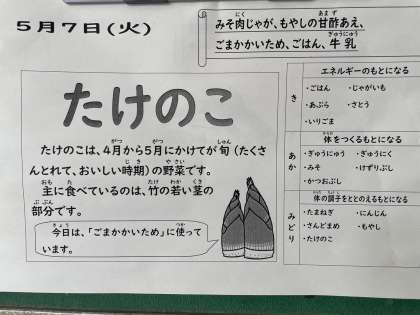 5月7日(火)
みそ肉じゃが、もやしの甘酢あえ、
ごまかかいため、ごはん、牛乳
たけのこ
たけのこは、4月から5月にかけてが旬(たくさ
んとれて、おいしい時期)の野菜です。
主に食べているのは、竹の若い茎の
部分です。
今日は、「ごまかかいため」に使って
います。
き
エネルギーのもとになる
・ごはん ・じゃがいも
・あぶら ・さとう
・いりごま
あか
体をつくるもとになる
・ぎゅうにゅう ・ぎゅうにく
・みそ ・けずりぶし
・かつおぶし
みどり
体の調子をととのえるもとになる
・たまねぎ ・にんじん
・さんどまめ ・もやし
・たけのこ